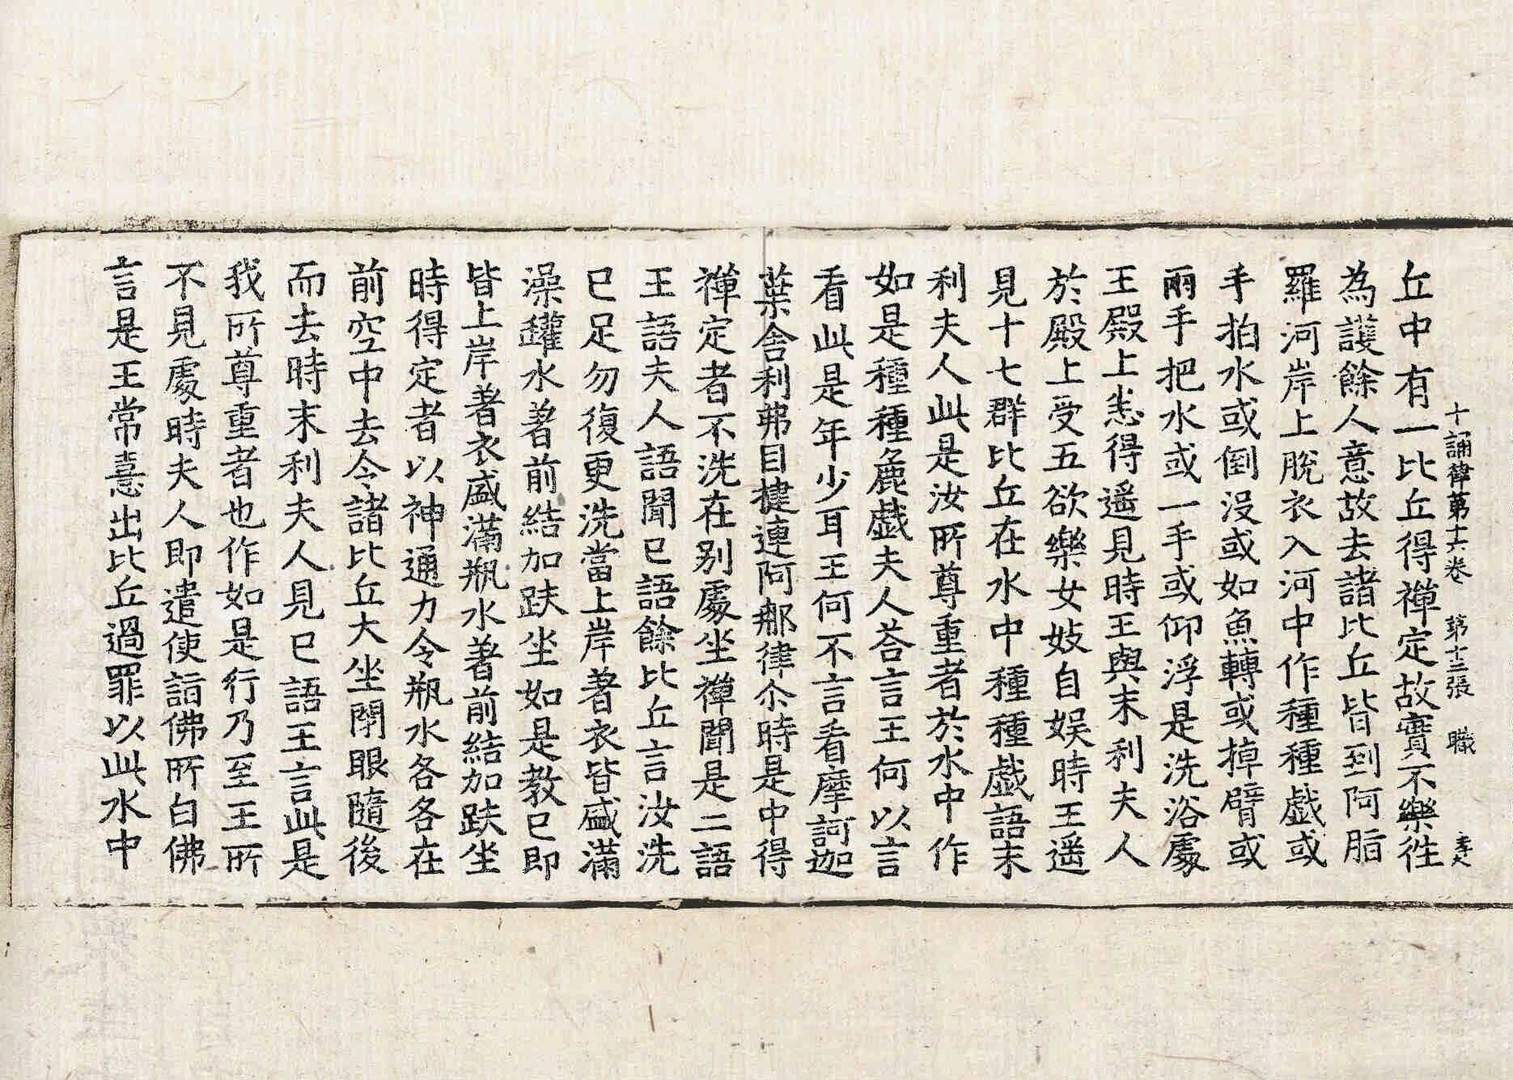 十誦律第十六卷　第十三張　職
丘中有一比丘得禪定故實不樂徃
為護餘人意故去諸比丘皆到阿脂
羅河岸上脫衣入河中作種種戱或
手拍水或倒没或如魚轉或掉臂或
兩手把水或一手或仰浮是洗浴處
王殿上悉得遥見時王與末利夫人
於殿上受五欲樂女妓自娱時王遥
見十七群比丘在水中種種戱語末
利夫人此是汝所尊重者於水中作
如是種種麁戱夫人荅言王何以言
看此是年少耳王何不言看摩訶迦
葉舎利弗目揵連阿那律尒時是中得
禪定者不洗在别處坐禪聞是二語
王語夫人語聞已語餘比丘言汝洗
已足勿復更洗當上岸著衣皆盛滿
澡鑵水著前結加趺坐如是教已即
皆上岸著衣盛滿瓶水著前結加趺坐
時得定者以神通力令瓶水各各在
前空中去令諸比丘大坐閉眼隨後
而去時末利夫人見已語王言此是
我所尊重者也作如是行乃至王所
不見處時夫人即遣使詣佛所白佛
言是王常憙出比丘過罪以此水中